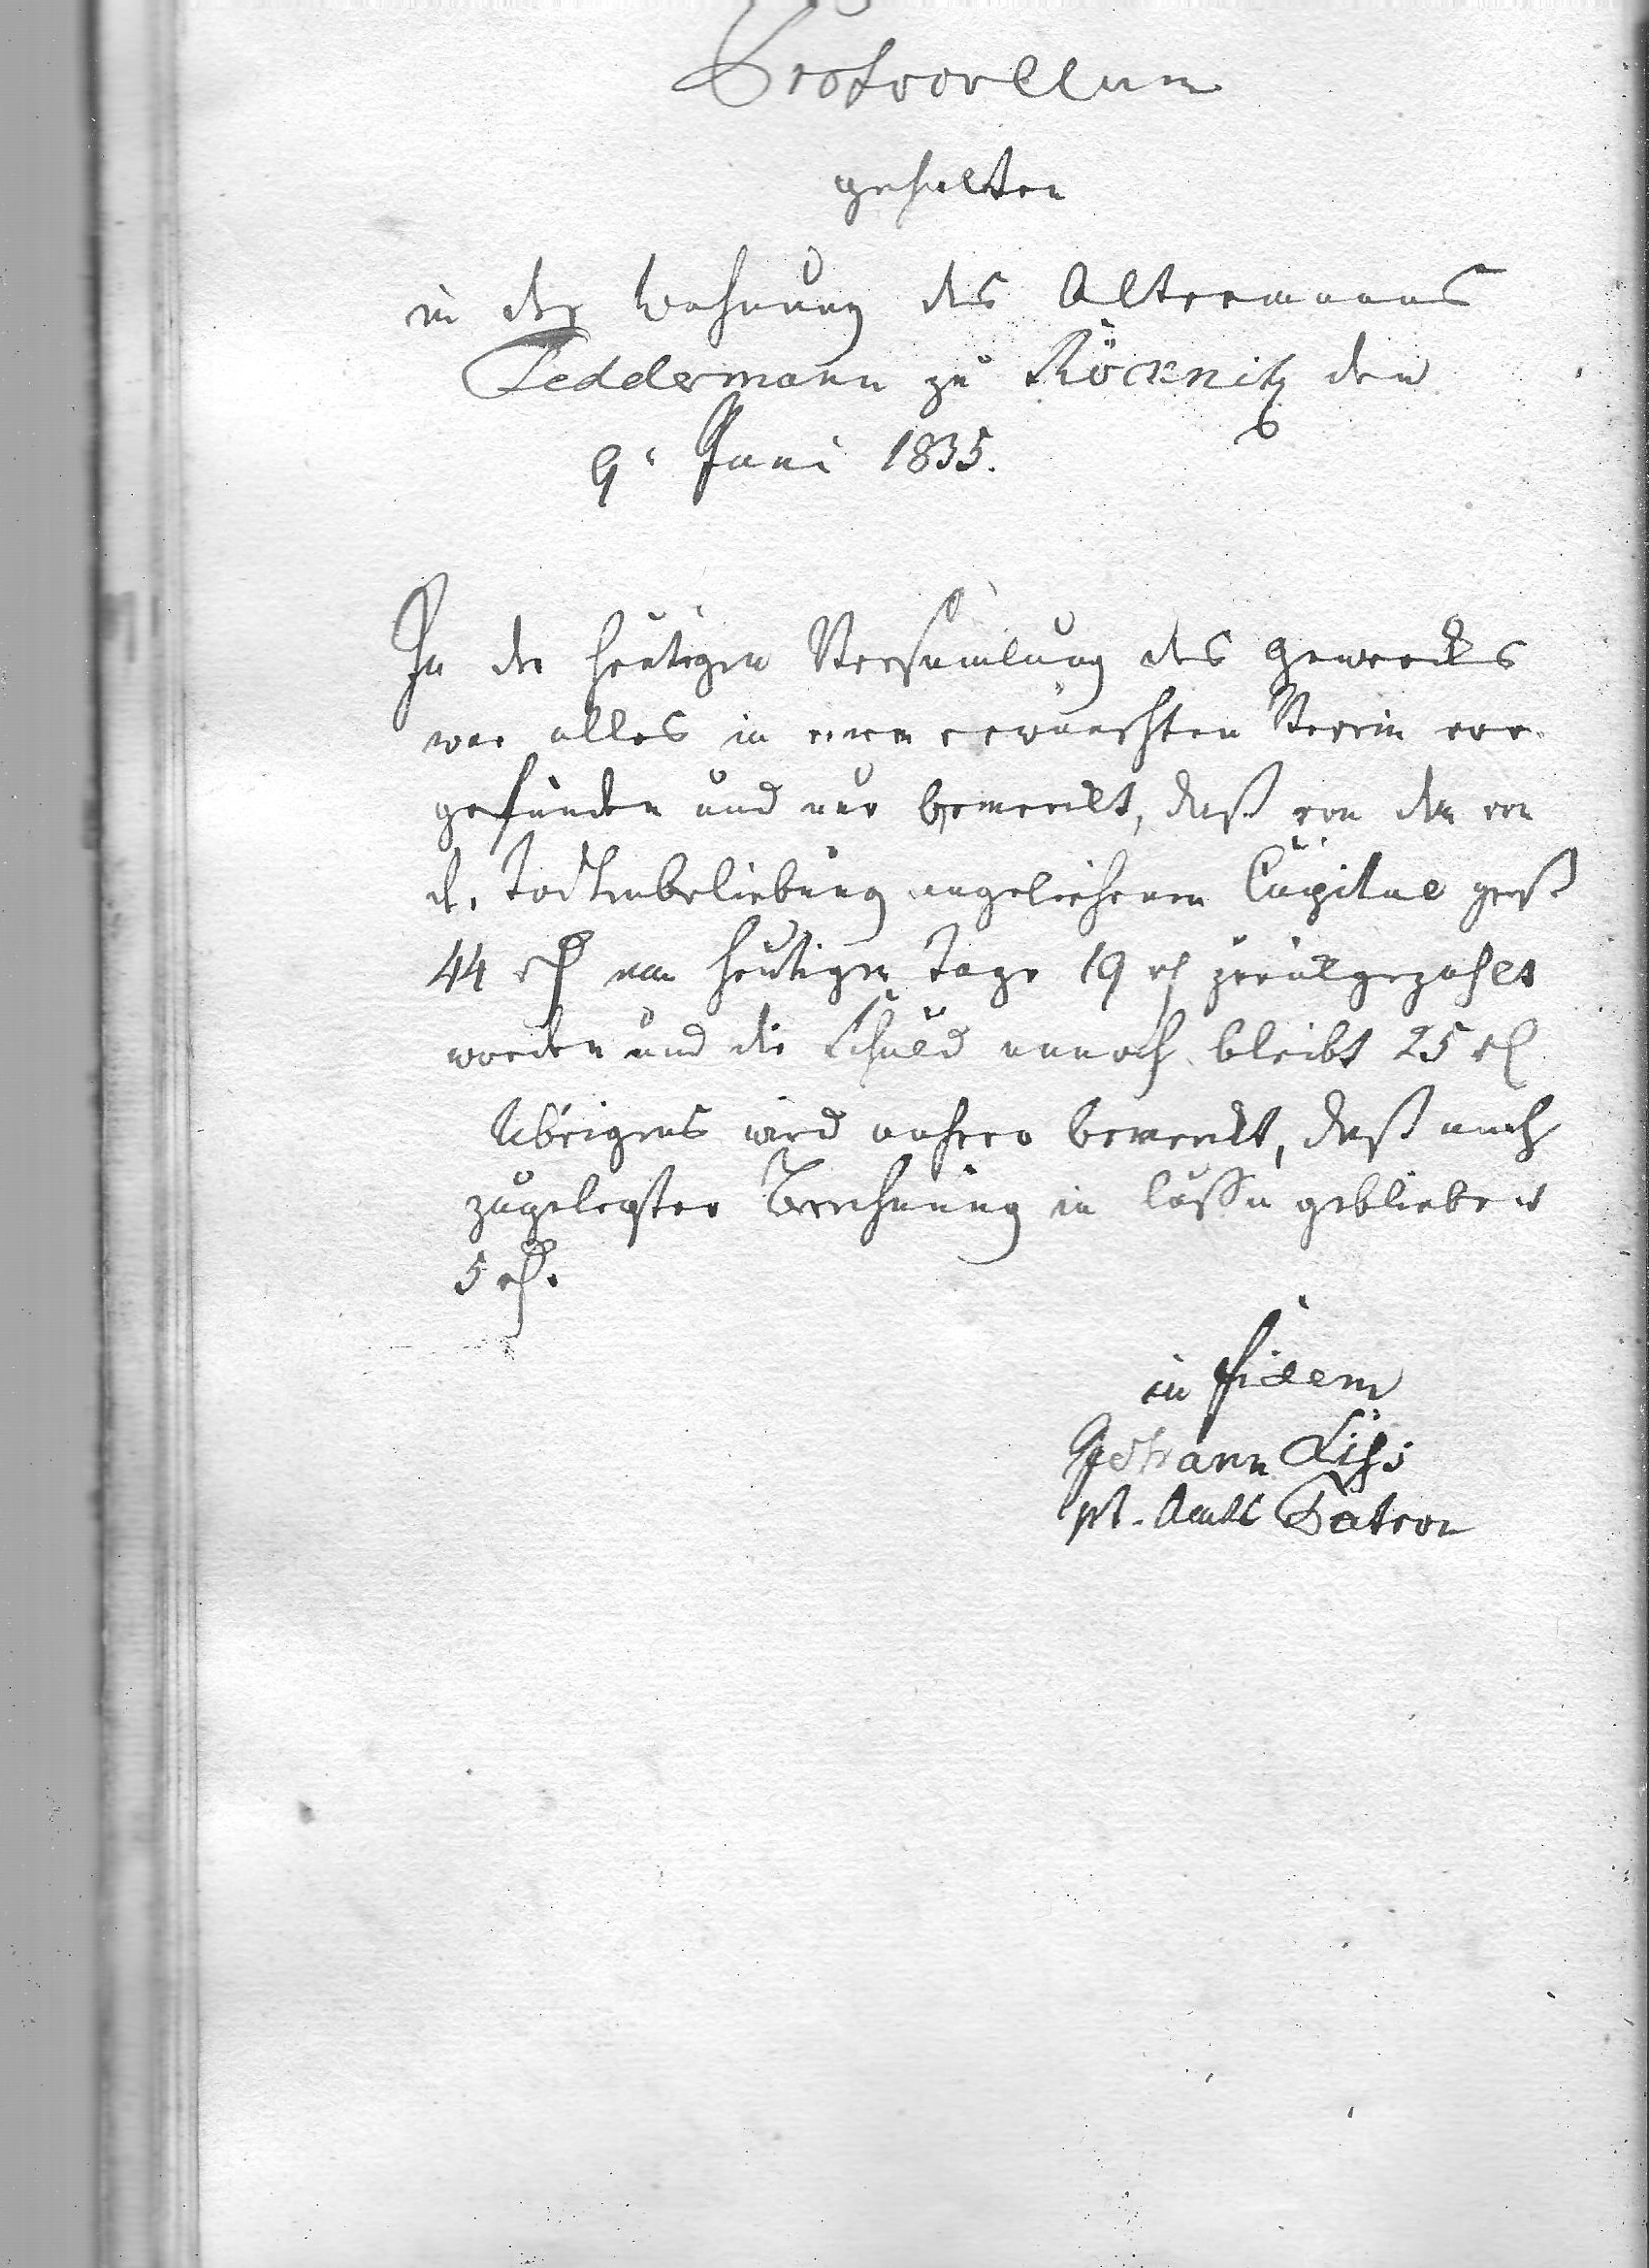 Protocollum
gehalten
in der Wohnung des Altermanns
Feddermann zu Röcknitz den
9t Juni 1835.
In der heutigen Versamlung des Gewercks
war alles in einem erwünschten Verein vor-
gefunden und nur bemerckt, daß von dem von
d. Todtenbeliebung angeliehenen Capital groß
44 rh am heutigen Tage 19 rh zurückgezahlt
worden und die Schuld annoch bleibt 25 rh
Übrigens wird anhero bemerckt, daß nach
zugelegter Berechnung in Cassa geblieben
5 rh.
in fidem
Johann
pt. Amts Patron